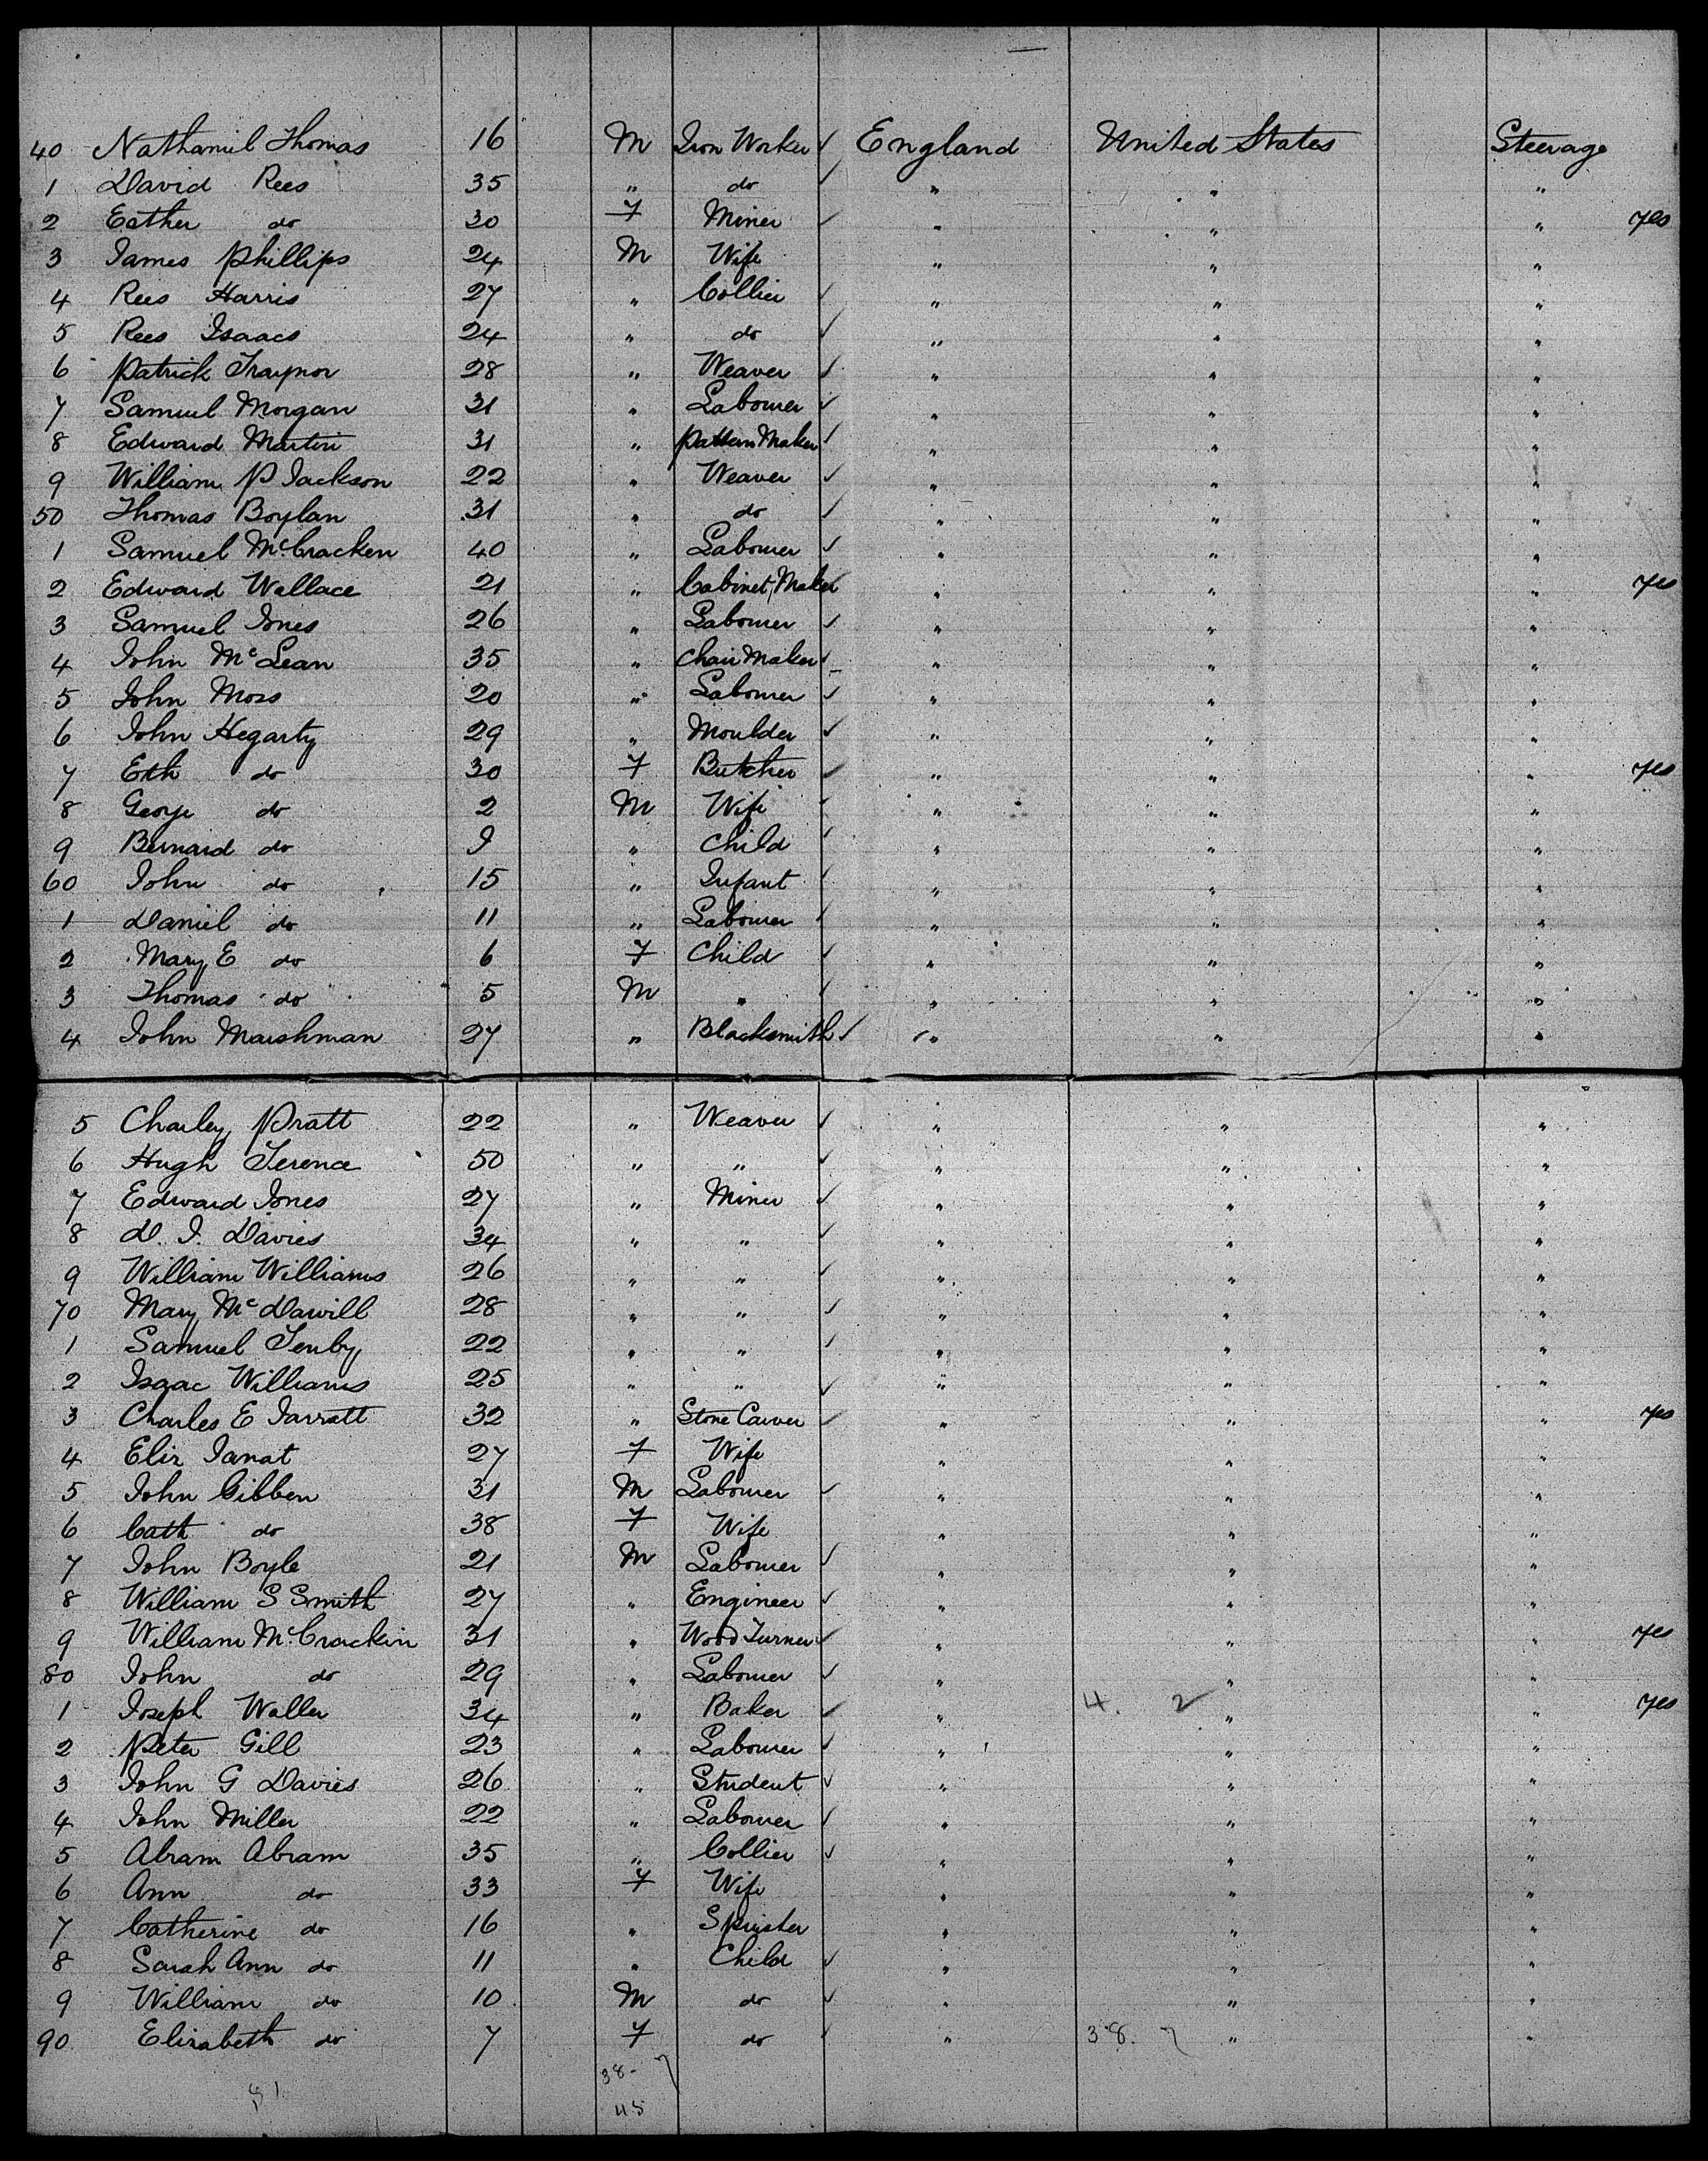 40 Nathaniel Thomas 16 M Iron Worker ✓ England United States Steerage
1 David Rees 35 " do ✓ " " "
2 Esther do 30 F Miner ✓ " " " yes
3 James Phillips 24 M Wife " " "
4 Rees Harris 27 " Collier ✓ " " "
5 Rees Isaacs 24 " do ✓ " " "
6 Patrick Traynor 28 " Weaver ✓ " " "
7 Samuel Morgan 31 " Labourer ✓ " " "
8 Edward Martin 31 " Pattern Maker ✓ " " "
9 William P Jackson 22 " Weaver ✓ " " "
50 Thomas Boylan 31 " do ✓ " " "
1 Samuel McCracken 40 " Labourer ✓ " " "
2 Edward Wallace 21 " Cabinet Maker " " " yes
3 Samuel Jones 26 " Labourer ✓ " " "
4 John McLean 35 " Chair Maker ✓ " " "
5 John Moss 20 " Labourer ✓ " " "
6 John Hegarty 29 " Moulder ✓ " " "
7 Eth do 30 F Butcher ✓ " " " yes
8 George do 2 M Wife ✓ " " "
9 Bernard do 9 " Child ✓ " " "
60 John do 15 " Infant ✓ " " "
1 Daniel do 11 " Labourer ✓ " " "
2 Mary E do 6 F Child ✓ " " "
3 Thomas do 5 M " ✓ " " "
4 John Marshman 27 " Blacksmith ✓ " " "
5 Charley Pratt 22 " Weaver ✓ " " "
6 Hugh Terence 50 " " ✓ " " "
7 Edward Jones 27 " Miner ✓ " " "
8 D. J. Davies 34 " " ✓ " " "
9 William Williams 26 " " ✓ " " "
70 Mary McDawill 28 " " ✓ " " "
1 Samuel Tenby 22 " " ✓ " " "
2 Isaac Williams 25 " " ✓ " " "
3 Charles E Jarratt 32 " Stone Carver ✓ " " " yes
4 Eliz Janat 27 F Wife " " "
5 John Gibben 31 M Labourer ✓ " " "
6 Cath do 38 F Wife " " "
7 John Boyle 21 M Labourer ✓ " " "
8 William S Smith 27 " Engineer ✓ " " "
9 William McCrackin 31 " Wood Turner ✓ " " " yes
80 John do 29 " Labourer ✓ " " "
1 Joseph Waller 34 " Baker ✓ " 4. 2 " " yes
2 Peter Gill 23 " Labourer ✓ " " "
3 John G Davies 26 " Student ✓ " " "
4 John Miller 22 " Labourer ✓ " " "
5 Abram Abram 35 " Collier ✓ " " "
6 Ann do 33 F Wife " " "
7 Catherine do 16 " Spinster " " "
8 Sarah Ann do 11 " Child ✓ " " "
9 William do 10 M do ✓ " " "
90 Elizabeth do 7 F do ✓ " 38. 7 " "
38- 7
45